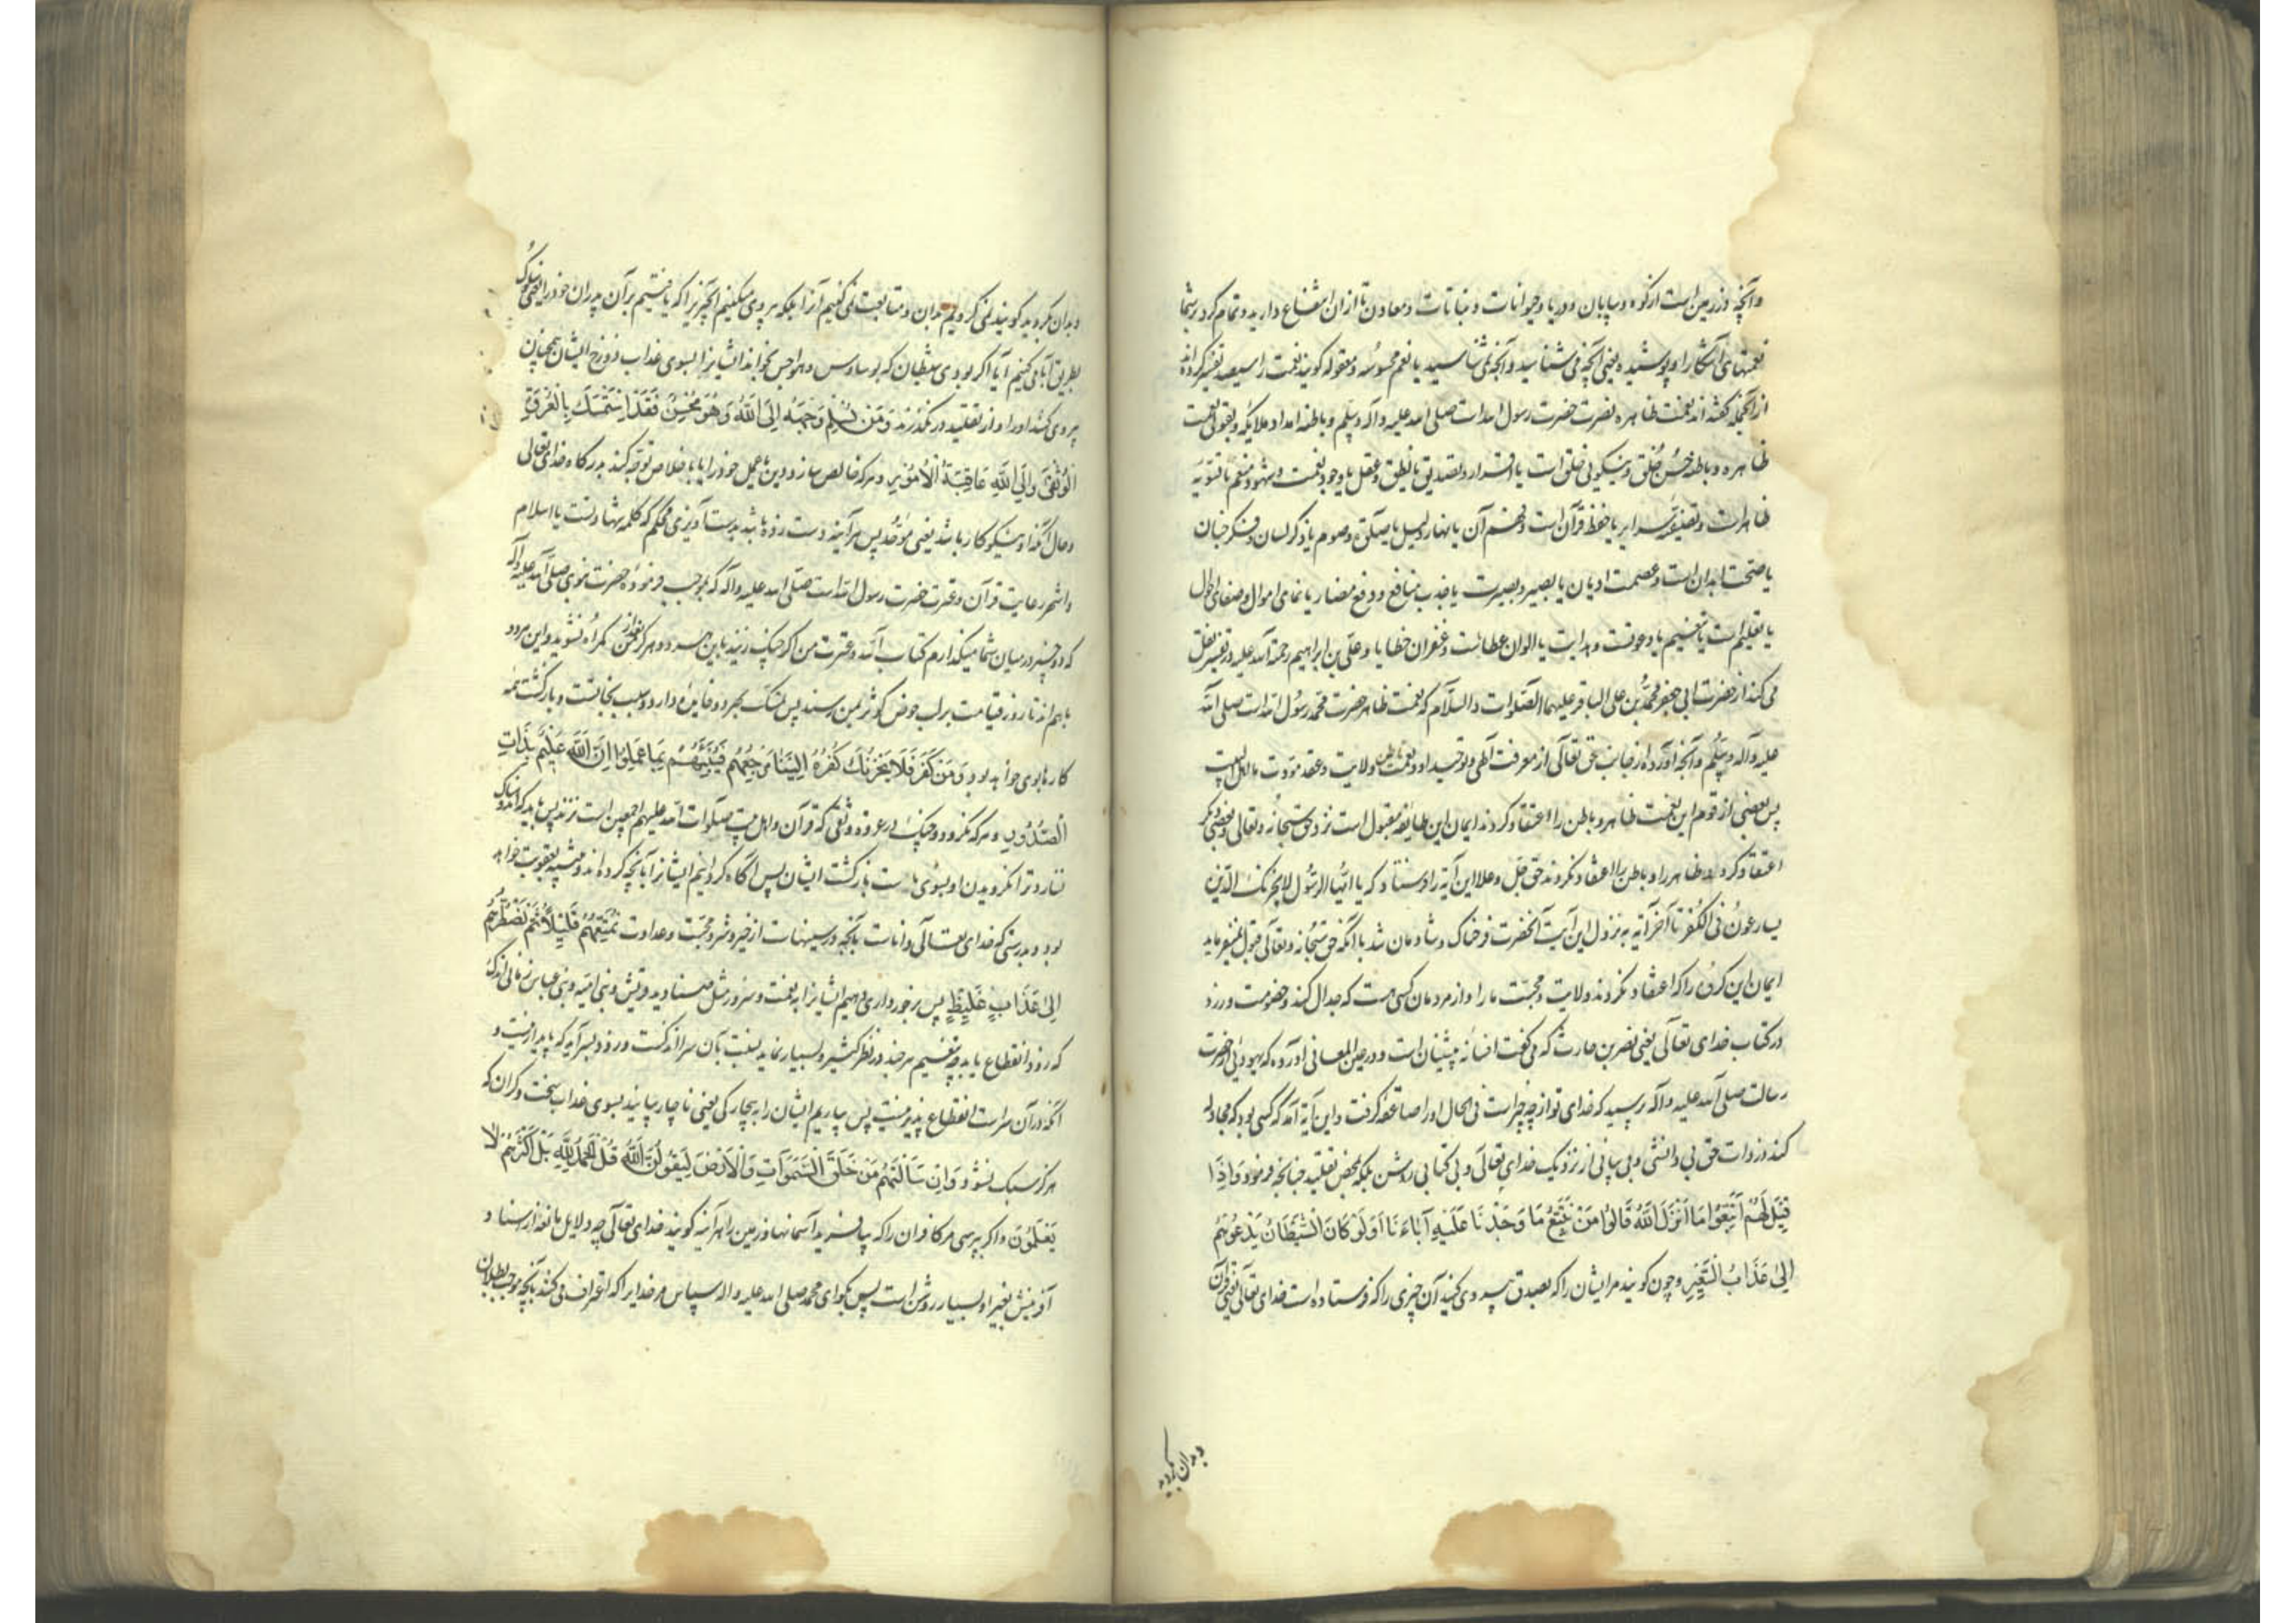 وآنچه در زمین است از کوه و بیابان و دریا و حیوانات و نباتات و معادن تا از ان انتفاع دارید و تمام کرد بر شما
نعمتهای آشکارا و پوشیده یعنی آنچه می شناسید و آنچه نمی شناسید یا نعم محسوسه و معقوله کویند نعمت را سیصد تفسیر کرده اند
از آنجمله کفته اند نعمت ظاهره نصرت حضرت رسول الله است صلی الله علیه و آله وسلم و باطنه امداد ملایکه و بقولی نعمت
ظاهره و باطنه حسن خُلق و نیکویی خلق است یا اقرار و تصدیق یا نطق و عقل یا وجود نعمت و شهود منعم یا تسویه
ظاهر است و تصفیه سرایر یا حفظ قرآن است و فهم آن یا نهار و لیل یا صلوة و صوم یا ذکر لسان و فکر جنان
یا صحت ابدان است و عصمت ادیان یا بصر و بصیرت یا جذب منافع و دفع مضار یا نمای اموال و صفای احوال
یا تعلیم است یا تفهیم یا دعوت و هدایت یا الوان عطایا و غفران خطایا و علی بن ابراهیم رحمة الله علیه در تفسیر نقل
می کند از حضرت ابی جعفر محمد بن علی الباقر علیهما الصلوات والسلام که نعمت ظاهر حضرت محمد رسول الله است صلی الله
علیه وآله وسلم وآنچه آورده از جانب حق تعالی از معرفت آلهی و توحید او و نعمت باطن ولایت و عقد مودت ما اهل البیت
پس بعضی از قوم این نعمت ظاهر و باطن را اعتقاد کردند ایمان این طایفه مقبول است نزد حق سبحانه وتعالی و بعضی دیکر
اعتقاد کردند ظاهر را و باطن را اعتقاد نکردند حق جل وعلا این آیه را فرستاد که یا ایها الرسول لا یحزنک الذین
یسارعون فی الکفر تا آخر آیه به نزول این آیت آنحضرت فرحناک و شادمان شد با آنکه حق سبحانه وتعالی قبول نمیفرماید
ایمان این کروه را که اعتقاد نکردند ولایت و محبت ما را و از مردمان کسی هست که جدال کند و خصومت ورزد
در کتاب خدای تعالی یعنی نضر بن حارث که می کفت افسانه پیشینیان است و در عین المعانی آورده که یهودیی از حضرت
رسالت صلی الله علیه وآله پرسید که خدای تو از چه چیز است فی الحال او را صاعقه کرفت و این آیة آمد که کسی بود که مجادله
کند در ذات حق بی دانشی و بی بیانی از نزدیک خدای تعالی و بی کتابی روشن بلکه بمحض تقلید چنانچه فرمود وَاِذَا
قِیلَ لَهُمْ اتَّبِعُوا مَا اَنْزَلَ اللّٰهُ قَالُوا بَلْ نَتَّبِعُ مَا وَجَدْنَا عَلَیْهِ آبَاءَنَا اَوَلَوْ کَانَ الشَّیْطَانُ یَدْعُوهُمْ
اِلیٰ عَذَابِ السَّعِیرِ وچون کویند مر ایشان را که بصدق پیروی کنید آن چیزی را که فرستاده است خدای تعالی یعنی قرآن
و بدان بکروید
و بدان بکروید کویند نمی کرویم بدان و متابعت نمی کنیم آنرا بلکه پیروی میکنیم آنچیزیرا که یافتیم بر آن پدران خود را یعنی سلوک
بطریق آبا می کنیم آیا اکر بودی شیطان که بوساوس و هواجس بخواند ایشانرا بسوی عذاب دوزخ ایشان همچنان
پیروی کنند او را و از تقلید در نکذرند وَمَنْ یُسْلِمْ وَجْهَهُ اِلَی اللّٰهِ وَهُوَ مُحْسِنٌ فَقَدِ اسْتَمْسَکَ بِالْعُرْوَةِ
الْوُثْقیٰ وَاِلَی اللّٰهِ عَاقِبَةُ الْاُمُورِ و هرکه خالص سازد دین یا عمل خود را یا باخلاص توجه کند بدرکاه خدای تعالی
و حال آنکه او نیکوکار باشد یعنی موحد پس هرآینه دست زده باشد بدست آویزی محکم که کلمه شهادت است یا اسلام
واشهر رعایت قرآن و عترت حضرت رسول الله است صلی الله علیه وآله که بموجب فرموده حضرت نبوی صلی الله علیه وآله
که دو چیز در میان شما میکذارم کتاب الله و عترت من اکر چنک زنید باین هر دو هرکز بعد از من کمراه نشوید و این هر دو
باهم اند تا روز قیامت بر لب حوض کوثر بمن رسند پس تمسک بهر دو فایده دارد و سبب نجاتست و بازکشت همه
کارها بوی خواهد بود وَمَنْ کَفَرَ فَلَا یَحْزُنْکَ کُفْرُهُ اِلَیْنَا مَرْجِعُهُمْ فَنُنَبِّئُهُمْ بِمَا عَمِلُوا اِنَّ اللّٰهَ عَلِیمٌ بِذَاتِ
الصُّدُورِ و هرکه نکرود و چنک در عروه وثقی که قرآن و اهل بیت صلوات الله علیهم اجمعین است نزند پس باید که اندوهناک
نسازد ترا نکرویدن او بسوی ماست بازکشت ایشان پس آگاه کردانیم ایشانرا بآنچه کرده اند و منتبه بعقوبت خواهد
بود و بدرستی که خدای تعالی داناست بآنچه در سینهاست از خیر و شر و محبت و عداوت نُمَتِّعُهُمْ قَلِیلًا ثُمَّ نَضْطَرُّهُمْ
اِلیٰ عَذَابٍ غَلِیظٍ پس برخورداری دهیم ایشانرا به نعمت و سرور مثل صنادید قریش و بنی امیه و بنی عباس زمانی اندک
که زود انقطاع یابد چه نعیم هرچند در نظر کثیر و بسیار نماید نسبت بآن سرا اندکست و زود بسر آید که پایدار نیست و
آنکه در آن سراست انقطاع پذیر نیست پس بیاریم ایشان را به بیچارکی یعنی ناچار بیایند بسوی عذاب سخت و کران که
هرکز سبک نشود وَلَئِنْ سَاَلْتَهُمْ مَنْ خَلَقَ السَّمٰوَاتِ وَالْاَرْضَ لَیَقُولُنَّ اللّٰهُ قُلِ الْحَمْدُ لِلّٰهِ بَلْ اَکْثَرُهُمْ لَا
یَعْلَمُونَ و اکر بپرسی مر کافران را که بیافرید آسمانها و زمین را هرآینه کویند خدای تعالی چه دلایل مانعه از اسناد
آفرینش بغیر او بسیار روشن است پس بکو ای محمد صلی الله علیه واله سپاس مر خدایرا که اعتراف می کنند بآنچه موجب بطلان